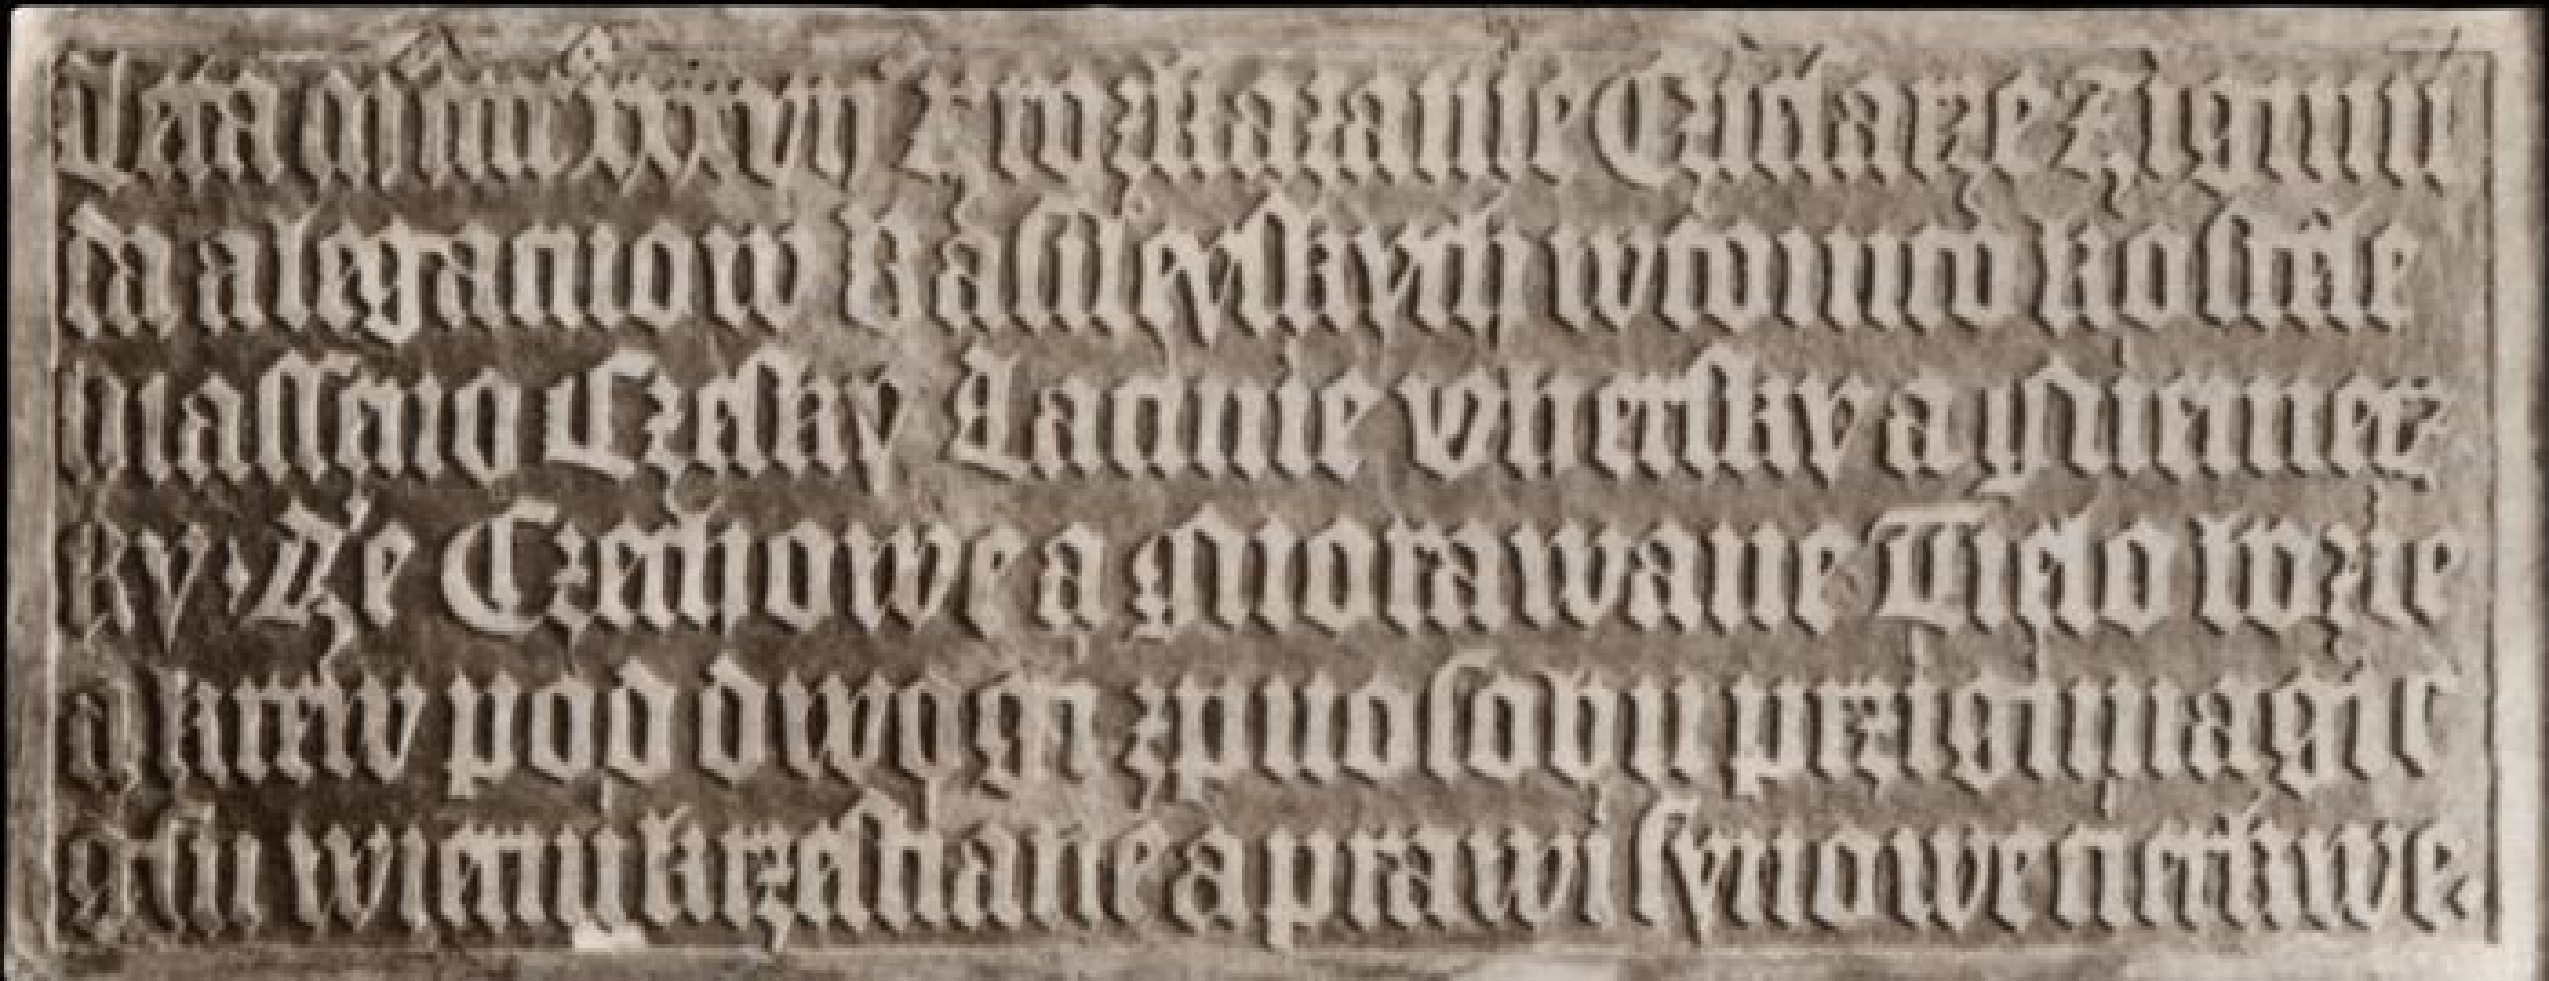 Leta mcccc xxxvij z rozkazanie Czieſarze Zigmu
da a legatuow Baſileyſkych w tomto koſtele
hlaſſeno Czeſky Latinie Uherſky a Niemecz
ky. Ze Czechowe a Morawane Tielo bozie
a krew pod dwogi zpuoſobu przigimagic
gſu wierni krzeſtiane a prawi ſynowe cierkwe.